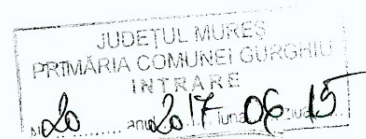 JUDEȚUL MUREȘ
PRIMĂRIA COMUNEI GURGHIU
INTRARE
Nr. 20 anul 2017 luna 06 ziua 15